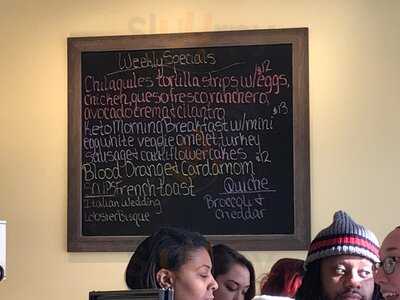 Weekly Specials
Chilaquiles tortilla strips w/eggs, $12
chicken, queso fresco, ranchero,
avocado crema + cilantro
Keto Morning Breakfast w/mini $13
egg white veggie omelet turkey
sausage + cauliflower cakes
Blood Orange + Cardamom $12
French toast
SOUPS
Italian Wedding
Lobster Bisque
Quiche
Broccoli &
Cheddar